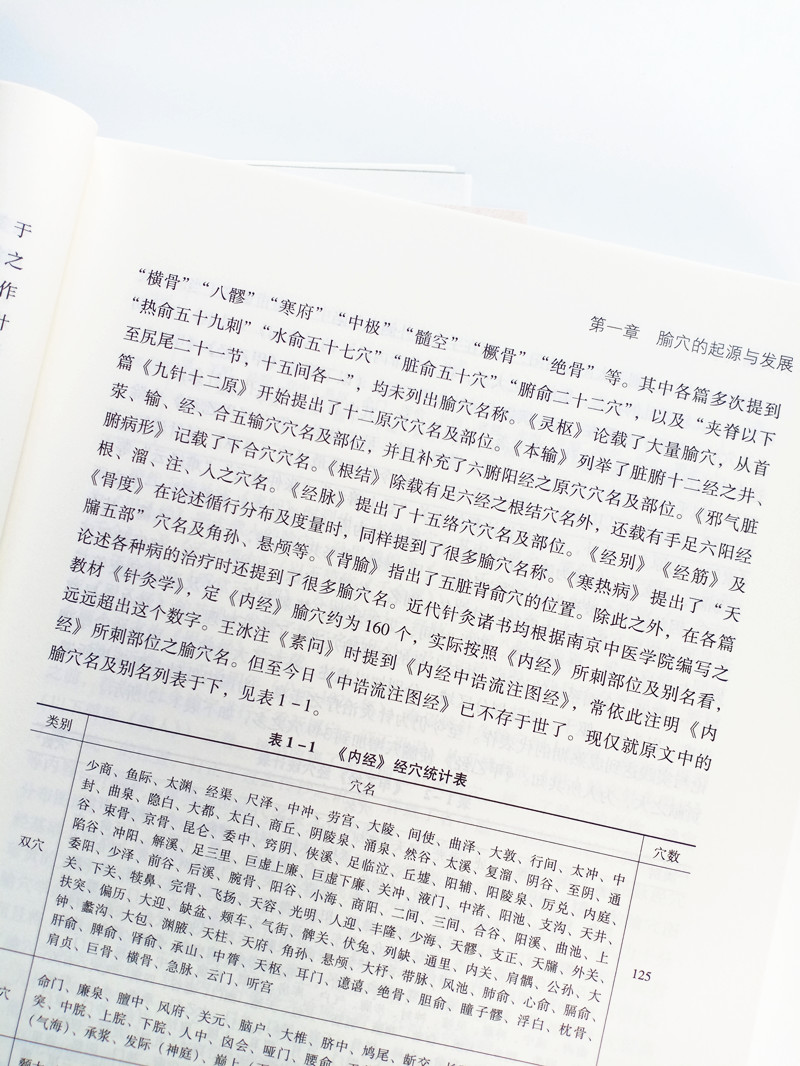 于
之
作
计
第一章　腧穴的起源与发展
“横骨”“八髎”“寒府”“中极”“髓空”“橛骨”“绝骨”等。其中各篇多次提到
“热俞五十九刺”“水俞五十七穴”“脏俞五十穴”“腑俞二十二穴”，以及“夹脊以下
至尻尾二十一节，十五间各一”，均未列出腧穴名称。《灵枢》论载了大量腧穴，从首
篇《九针十二原》开始提出了十二原穴穴名及部位。《本输》列举了脏腑十二经之井、
荥、输、经、合五输穴穴名及部位，并且补充了六腑阳经之原穴穴名及部位。《邪气脏
腑病形》记载了下合穴穴名。《根结》除载有足六经之根结穴名外，还载有手足六阳经
根、溜、注、人之穴名。《经脉》提出了十五络穴穴名及部位。《经别》《经筋》及
《骨度》在论述循行分布及度量时，同样提到了很多腧穴名称。《寒热病》提出了“天
牖五部”穴名及角孙、悬颅等。《背腧》指出了五脏背俞穴的位置。除此之外，在各篇
论述各种病的治疗时还提到了很多腧穴名。近代针灸诸书均根据南京中医学院编写之
教材《针灸学》，定《内经》腧穴约为160个，实际按照《内经》所刺部位及别名看，
远远超出这个数字。王冰注《素问》时提到《内经中诰流注图经》，常依此注明《内
经》所刺部位之腧穴名。但至今日《中诰流注图经》已不存于世了。现仅就原文中的
腧穴名及别名列表于下，见表1-1。
表1-1　《内经》经穴统计表
类别　穴名　穴数
双穴
少商、鱼际、太渊、经渠、尺泽、中冲、劳宫、大陵、间使、曲泽、大敦、行间、太冲、中
封、曲泉、隐白、大都、太白、商丘、阴陵泉、涌泉、然谷、太溪、复溜、阴谷、至阴、通
谷、束骨、京骨、昆仑、委中、窍阴、侠溪、足临泣、丘墟、阳辅、阳陵泉、厉兑、内庭、
陷谷、冲阳、解溪、足三里、巨虚上廉、巨虚下廉、关冲、液门、中渚、阳池、支沟、天井、
委阳、少泽、前谷、后溪、腕骨、阳谷、小海、商阳、二间、三间、合谷、阳溪、曲池、上
关、下关、犊鼻、完骨、飞扬、天容、光明、人迎、丰隆、少海、天髎、支正、天牖、外关、
扶突、偏历、大迎、缺盆、颊车、气街、髀关、伏兔、列缺、通里、内关、肩髃、公孙、大
钟、蠡沟、大包、渊腋、天柱、天府、角孙、悬颅、大杼、带脉、风池、肺俞、心俞、膈俞、
肝俞、脾俞、肾俞、承山、中膂、天枢、耳门、譩譆、绝骨、胆俞、瞳子髎、浮白、枕骨、
肩贞、巨骨、横骨、急脉、云门、听宫
125
穴
命门、廉泉、膻中、风府、关元、脑户、大椎、脐中、鸠尾、龂交、
突、中脘、上脘、下脘、人中、囟会、哑门、腰俞、
（气海）、承浆、发际（神庭）、巅上